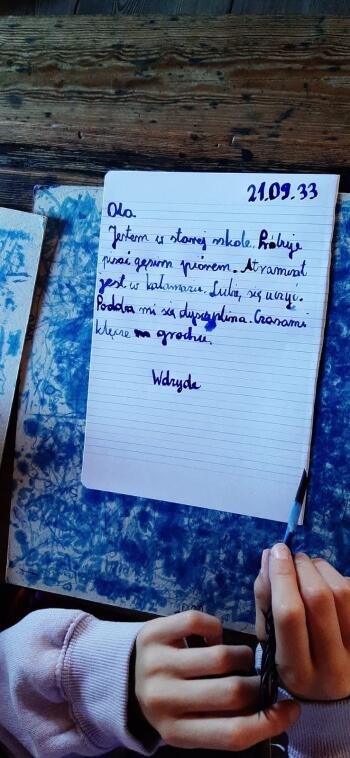 21.09.33
Ola.
Jestem w starej szkole. Próbuje
pisać gęsim piórem. Atrament
jest w kałamarzu. Lubię się uczyć.
Podoba mi się dyscyplina. Czasami
klęczę na grochu.